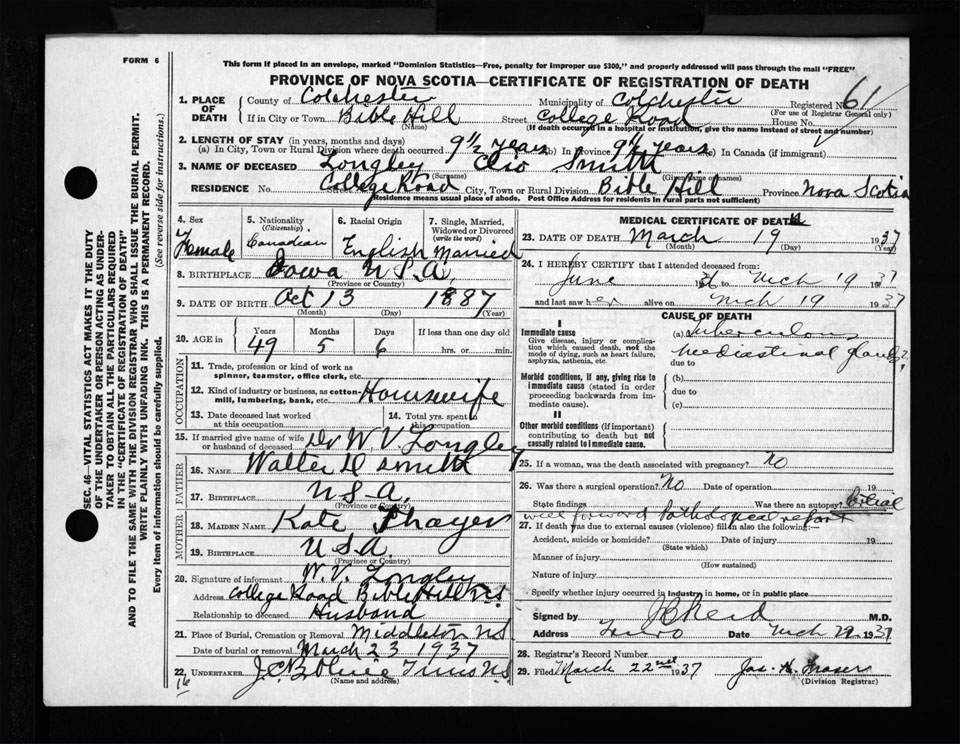 FORM 6
This form if placed in an envelope, marked "Dominion Statistics—Free, penalty for improper use $300," and properly addressed will pass through the mail "FREE"
PROVINCE OF NOVA SCOTIA—CERTIFICATE OF REGISTRATION OF DEATH
1. PLACE OF DEATH
County of Colchester Municipality of Colchester Registered No. 61
(For use of Registrar General only)
If in City or Town Bible Hill Street College Road House No.
(Name) (If death occurred in a hospital or institution, give the name instead of street and number)
2. LENGTH OF STAY (in years, months and days)
(a) In City, Town or Rural Division where death occurred 9½ years 9½ years (c) In Canada (if immigrant)
3. NAME OF DECEASED Longley Clio Smith
(Surname) (Given name or names)
RESIDENCE No. College Road City, Town or Rural Division Bible Hill Province Nova Scotia
(Residence means usual place of abode. Post Office Address for residents in rural parts not sufficient)
4. Sex Female
5. Nationality (Citizenship) Canadian
6. Racial Origin English
7. Single, Married, Widowed or Divorced (write the word) Married
8. BIRTHPLACE Iowa U.S.A.
(Province or Country)
9. DATE OF BIRTH Oct 13 1887
(Month) (Day) (Year)
10. AGE in
Years Months Days If less than one day old
49 5 6 hrs. or min.
OCCUPATION
11. Trade, profession or kind of work as spinner, teamster, office clerk, etc.
12. Kind of industry or business, as cotton-mill, lumbering, bank, etc. Housewife
13. Date deceased last worked at this occupation
14. Total yrs. spent in this occupation
15. If married give name of wife or husband of deceased Dr W.V. Longley
FATHER
16. NAME Walter D Smith
17. BIRTHPLACE U.S.A.
(Province or Country)
MOTHER
18. MAIDEN NAME Kate Thayer
19. BIRTHPLACE U.S.A.
(Province or Country)
20. Signature of informant W.V. Longley
Address College Road Bible Hill N.S
Relationship to deceased Husband
21. Place of Burial, Cremation or Removal Middleton N.S
Date of burial or removal March 23 1937
22. UNDERTAKER Truro N.S
(Name and address)
16
MEDICAL CERTIFICATE OF DEATH
23. DATE OF DEATH March 19 1937
(Month) (Day) (Year)
24. I HEREBY CERTIFY that I attended deceased from:
June 1936 to Mch 19 1937
and last saw her alive on Mch 19 1937
CAUSE OF DEATH
I
Immediate cause
Give disease, injury or complication which caused death, not the mode of dying, such as heart failure, asphyxia, asthenia, etc.
(a) Tuberculous
mediastinal glands?
due to
Morbid conditions, if any, giving rise to immediate cause (stated in order proceeding backwards from immediate cause).
(b)
due to
(c)
II
Other morbid conditions (if important) contributing to death but not causally related to immediate cause.
25. If a woman, was the death associated with pregnancy? No
26. Was there a surgical operation? No Date of operation 19
State findings Was there an autopsy? Partial
will forward Pathological report
27. If death was due to external causes (violence) fill in also the following:—
Accident, suicide or homicide? Date of injury 19
(State which)
Manner of injury
(How sustained)
Nature of injury
Specify whether injury occurred in industry, in home, or in public place
Signed by Reid M.D.
Address Truro Date Mch 1937
28. Registrar's Record Number
29. Filed March 22nd 1937 Jas. H. Fraser
(Division Registrar)
SEC. 46—VITAL STATISTICS ACT MAKES IT THE DUTY
OF THE UNDERTAKER OR PERSON ACTING AS UNDER-
TAKER TO OBTAIN ALL THE PARTICULARS REQUIRED
IN THE "CERTIFICATE OF REGISTRATION OF DEATH"
AND TO FILE THE SAME WITH THE DIVISION REGISTRAR WHO SHALL ISSUE THE BURIAL PERMIT.
WRITE PLAINLY WITH UNFADING INK. THIS IS A PERMANENT RECORD.
Every item of information should be carefully supplied. (See reverse side for instructions.)